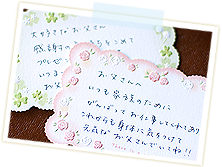 大好きなお父さん
感謝の
プレゼ
いつま
お父
お父さんへ
いつも家族のために
がんばってお仕事してくれてあり
これからも身体に気をつけて
元気なお父さんでいてね!!